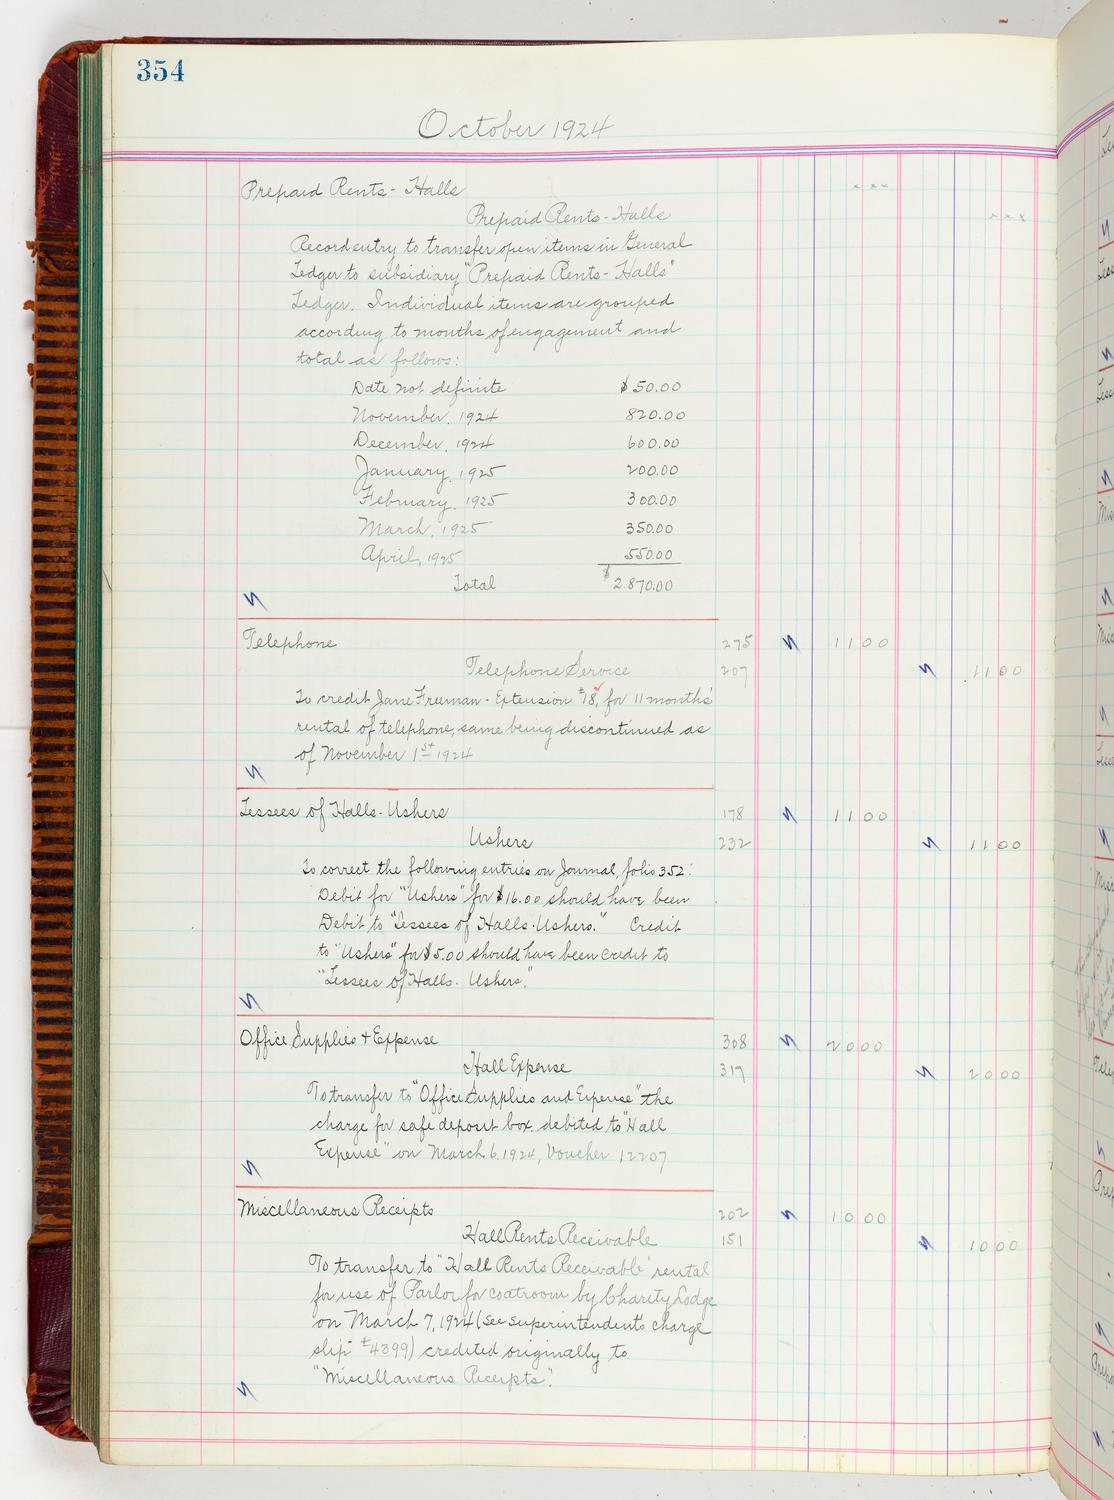 354
October 1924
Prepaid Rents - Halls x x x
Prepaid Rents - Halls x x x
Record entry to transfer open items in General
Ledger to subsidiary "Prepaid Rents - Halls"
Ledger. Individual items are grouped
according to months of engagement and
total as follows:
Date not definite $50.00
November, 1924 820.00
December, 1924 600.00
January, 1925 200.00
February, 1925 300.00
March, 1925 350.00
April, 1925 550.00
Total $2.870.00
Telephone 275 11 00
Telephone Service 207 11 00
To credit Jane Freeman - Extension #18, for 11 months'
rental of telephone, same being discontinued as
of November 1st 1924
Lessees of Halls - Ushers 178 11 00
Ushers 232 11 00
To correct the following entries on Journal, folio 352:
Debit for "Ushers" for $16.00 should have been
Debit to "Lessees of Halls - Ushers." Credit
to "Ushers" for $5.00 should have been credit to
"Lessees of Halls - Ushers."
Office Supplies & Expense 308 20 00
Hall Expense 317 20 00
To transfer to "Office Supplies and Expense" the
charge for safe deposit box debited to "Hall
Expense" on March 6, 1924, Voucher 12207
Miscellaneous Receipts 202 10 00
Hall Rents Receivable 151 10 00
To transfer to "Hall Rents Receivable" rental
for use of Parlor for coatroom by Charity Lodge
on March 7, 1924 (See Superintendent's charge
slip #4399) credited originally to
"Miscellaneous Receipts".